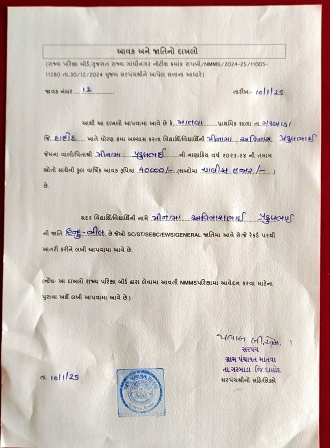 આવક અને જાતિનો દાખલો
(રાજ્ય પરીક્ષા બોર્ડ,ગુજરાત રાજ્ય ગાંધીનગર નોટીશ ક્રમાંક રાપબો/NMMS/2024-25/11005-
11280 તા.30/12/2024 મુજબ સરપંચશ્રીને આપેલ સત્તાના આધારે)
જાવક નંબર 12 તારીખ:- 10/1/25
આથી આ દાખલો આપવામાં આવે છે કે, માતવા પ્રાથમિક શાળા તા ગરબાડા
જિ. દાહોદ ખાતે ધોરણ ૮મા અભ્યાસ કરતા વિદ્યાર્થી/વિદ્યાર્થિની મીનામા અવિનાશ
જેમના વાલી/પિતાશ્રી મીનામા ની નાણાકિય વર્ષ ૨૦૨૩-૨૪ ની તમામ
સ્ત્રોતો સાથેની કુલ વાર્ષિક આવક રૂપિયા 40000/- (શબ્દોમાં ચાલીસ હજાર/-)
છે.
સદર વિદ્યાર્થી/વિદ્યાર્થિની નામે મીનામા
ની જાતિ હિન્દુ-ભીલ છે.જેઓ SC/ST/SEBC/EWS/GENERAL જાતિમાં આવે છેજે રેકર્ડ પરથી
ખાતરી કરીને લખી આપવામાં આવે છે.
(નોંધ:- આ દાખલો રાજ્ય પરીક્ષા બોર્ડ દ્વારા લેવામાં આવતી NMMSપરીક્ષામાં આવેદન કરવા માટેના
પુરાવા અર્થે લખી આપવામાં આવે છે.)
સરપંચ
ગ્રામ પંચાયત માતવા
તા.ગરબાડા જિ.દાહોદ
સરપંચશ્રીનો સહીસિક્કો
તા. 10/1/25